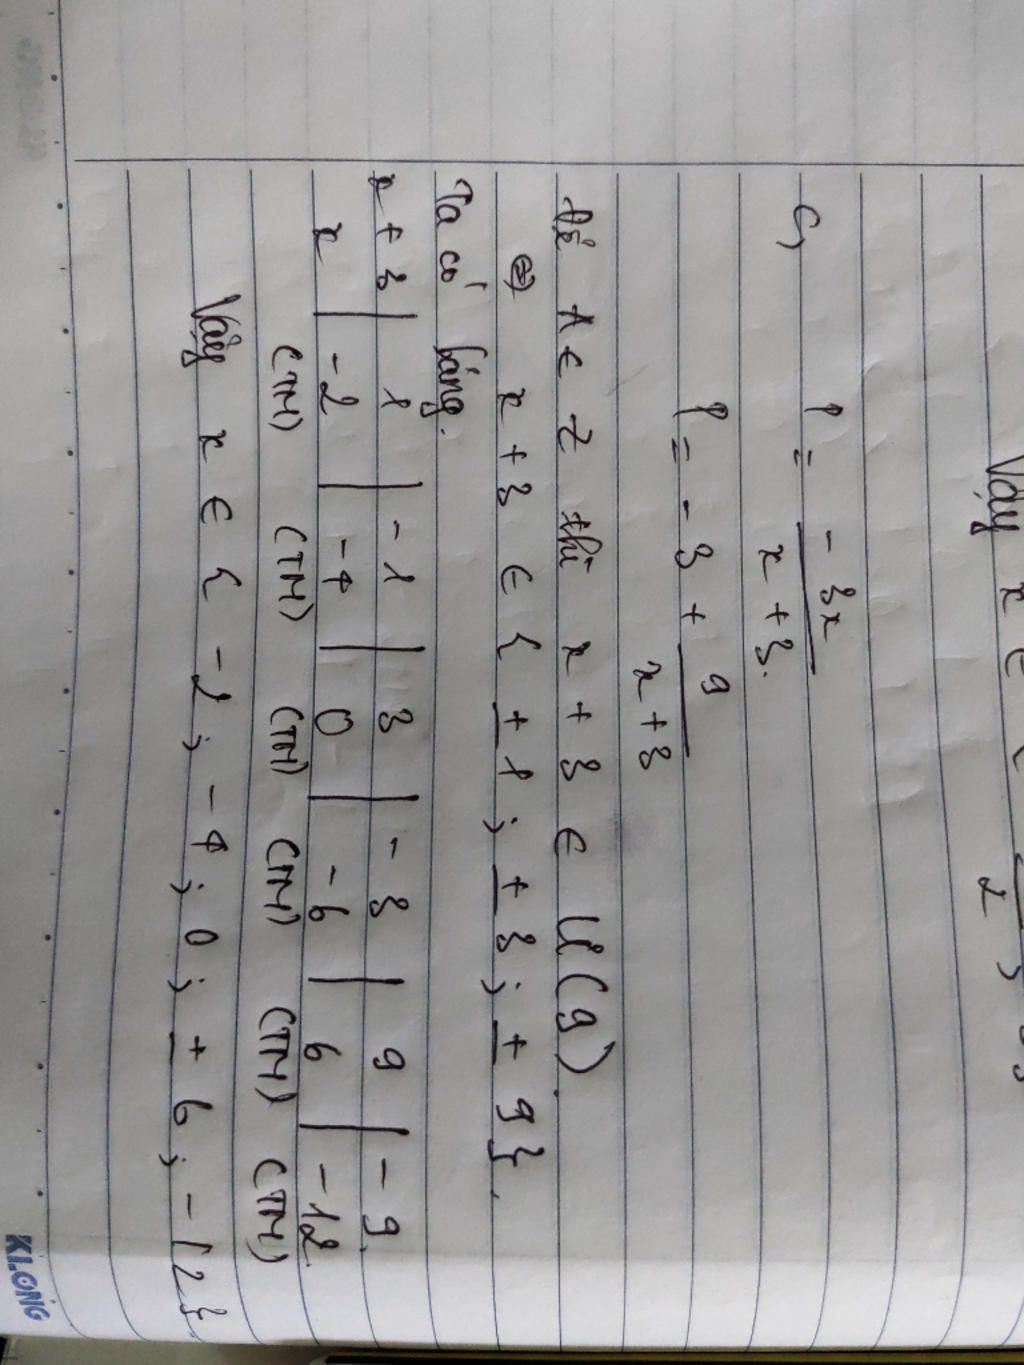 Vậy x ∈ {
2
c, P = -3x / x + 3.
P = -3 + 9 / x+3
Để A ∈ Z thì x + 3 ∈ Ư(9).
⇔ x + 3 ∈ { ±1 ; ±3 ; ±9}.
Ta có bảng.
x + 3 | 1 | -1 | 3 | -3 | 9 | -9.
x | -2 | -4 | 0 | -6 | 6 | -12
(TM) (TM) (TM) (TM) (TM) (TM)
Vậy x ∈ { -2; -4; 0; ±6; -12}.
KLONG